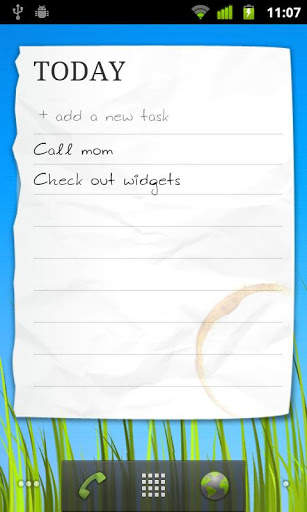 11:07
TODAY
+ add a new task
Call mom
Check out widgets